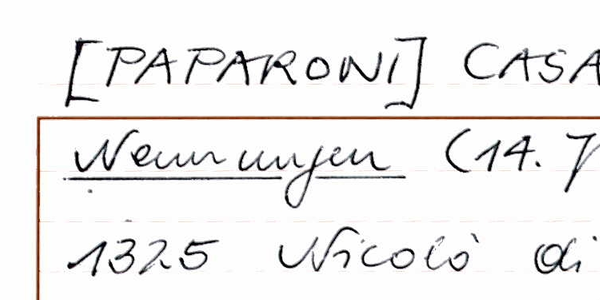 [PAPARONI] CASA
Nennungen (14. J
1325 Nicolò di